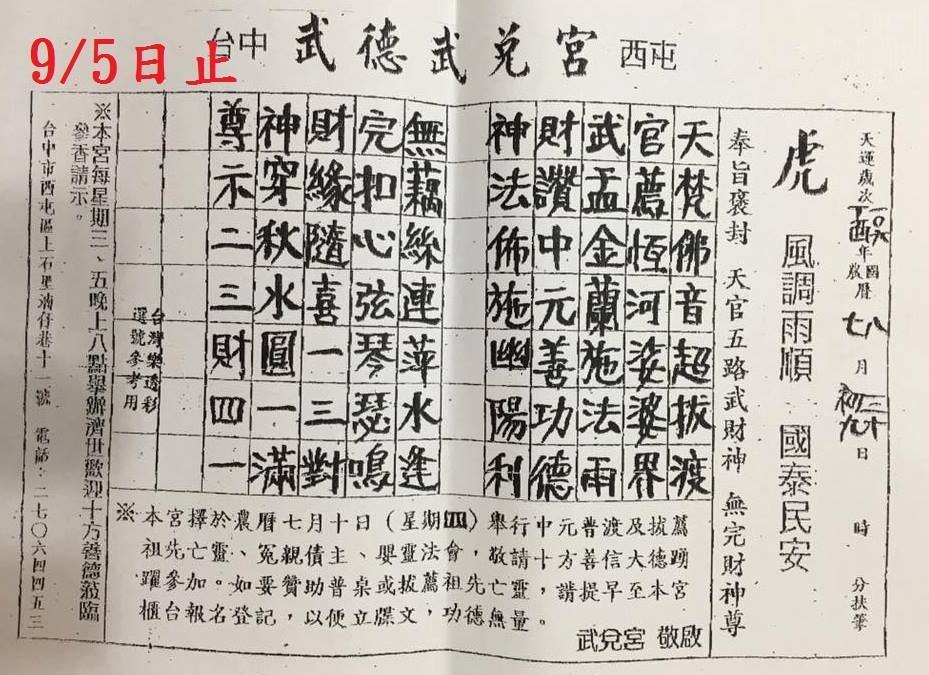 9/5日止
台中 武德武兌宮 西屯
天運歲次丁酉一〇六年國曆八月三十日 時 分扶筆
農曆七 初九
虎 風調雨順 國泰民安
奉旨褒封 天官五路武財神 無完財神尊
天梵佛音超拔渡
官薦恆河婆婆界
武孟金蘭施法雨
財讚中元善功德
神法佈施幽陽利
無藕絲連萍水逢
完扣心弦琴瑟鳴
財緣隨喜一三對
神穿秋水圓一滿
尊示二三財四一
台灣樂透彩
選號參考用
※本宮擇於農曆七月十日（星期四）舉行中元普渡及拔薦
祖先亡靈、冤親債主、嬰靈法會，敬請十方善信大德踴
躍參加。如要贊助普桌或拔薦祖先亡靈，請提早至本宮
櫃台報名登記，以便立牒文，功德無量。
武兌宮 敬啟
※本宮每星期三、五晚上八點舉辦濟世歡迎十方善德蒞臨
參香請示。
台中市西屯區上石里 巷十一號 電話：二七〇六四四五三